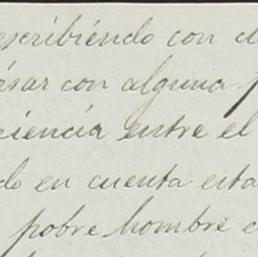 escribiendo con
con alguna
ciencia entre el
do en cuenta esta
pobre hombre